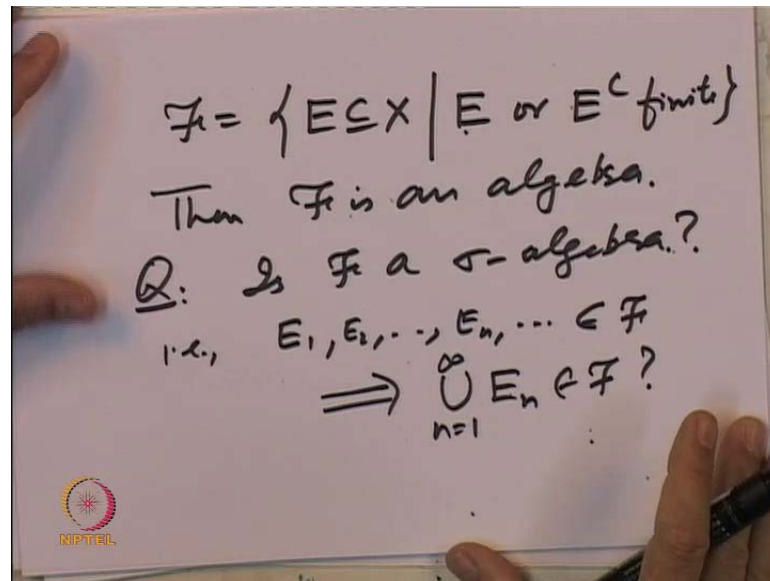 ℱ = { E ⊆ X | E or E^c finite }
Then ℱ is an algebra.
Q: Is ℱ a σ-algebra.?
i.e., E₁, E₂, .., Eₙ, ... ∈ ℱ
⟹ ⋃_{n=1}^{∞} Eₙ ∈ ℱ ?
NPTEL